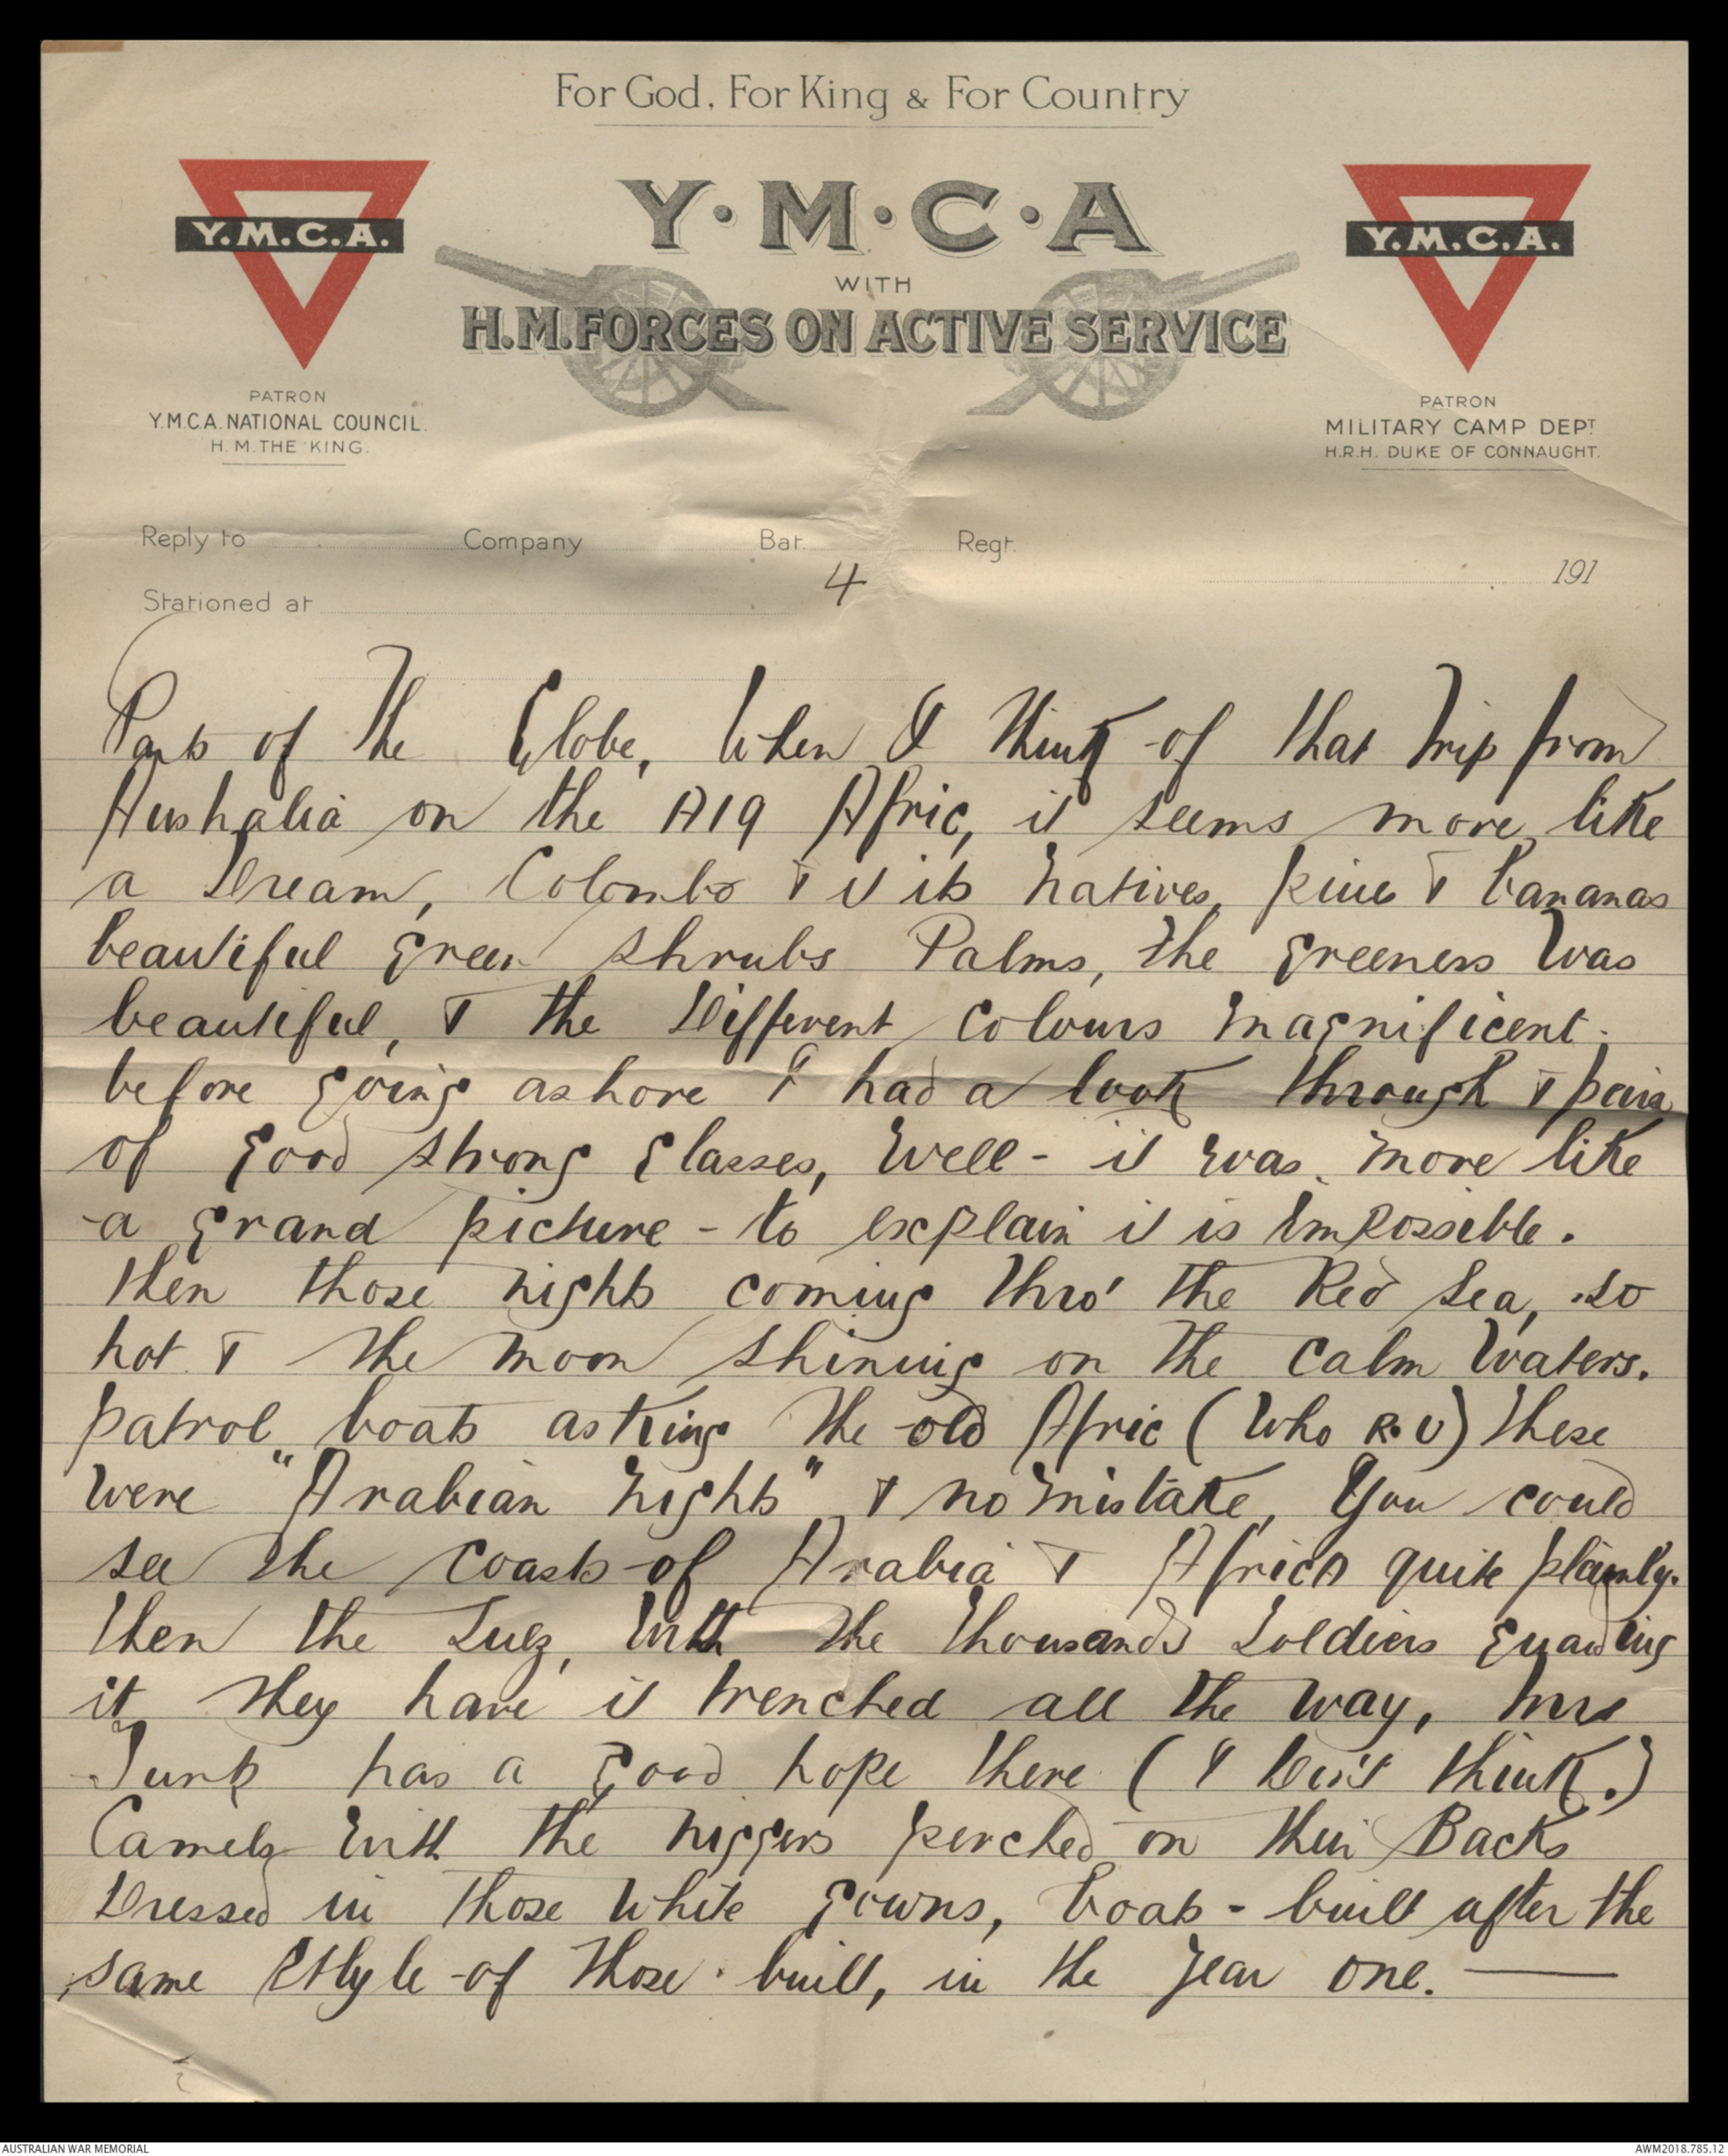 For God, For King & For Country
Y.M.C.A.
Y·M·C·A
Y.M.C.A.
WITH
H.M. FORCES ON ACTIVE SERVICE
PATRON
Y.M.C.A. NATIONAL COUNCIL.
H.M. THE KING.
PATRON
MILITARY CAMP DEPT
H.R.H. DUKE OF CONNAUGHT.
Reply to Company Bat. Regt.
191
4
Stationed at
Parts of the Globe, When I think of that trip from
Australia on the A19 Afric, it seems more like
a Dream, Colombo & it its natives, pines & bananas
beautiful green shrubs Palms, the greeness was
beautiful, & the Different colours magnificent.
before going ashore I had a look through & pair
of good strong glasses, well - it was more like
a grand picture - to explain it is impossible.
then those nights coming thro' the Red Sea, so
hot & the moon shining on the calm waters.
patrol boats asking the old Afric (Who R.U) these
were "Arabian nights" & no mistake, You could
see the coasts of Arabia & Africa quite plainly.
then the Suez, with the thousands Soldiers guarding
it they have it trenched all the way, Mrs
Turk has a good hope there (I don't think.)
Camels with the niggers perched on their Backs
Dressed in those white gowns, boats - built after the
same style of those built, in the year one. —
AUSTRALIAN WAR MEMORIAL
AWM2018.785.12